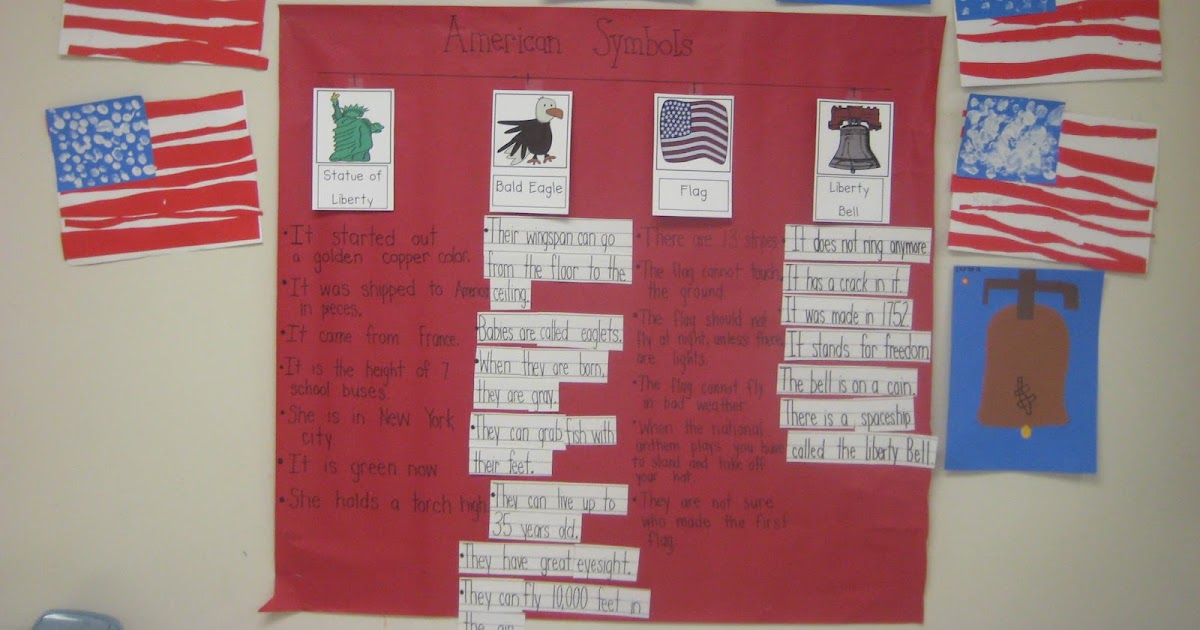 American Symbols
Statue of
Liberty
• It started out
a golden copper color.
• It was shipped to America
in pieces.
• It came from France.
• It is the height of 7
school buses.
• She is in New York
city
• It is green now
• She holds a torch high.
Bald Eagle
• Their wingspan can go
from the floor to the
ceiling.
Babies are called eaglets.
• When they are born,
they are gray.
• They can grab fish with
their feet.
• They can live up to
35 years old.
• They have great eyesight.
• They can fly 10,000 feet in
the air.
Flag
• There are 13 stripes
• The flag cannot touch
the ground.
• The flag should not
fly at night, unless there
are lights.
• The flag cannot fly
in bad weather.
• When the national
anthem plays you have
to stand and take off
your hat.
• They are not sure
who made the first
flag.
Liberty
Bell
It does not ring anymore.
It has a crack in it.
It was made in 1752.
It stands for freedom.
The bell is on a coin.
There is a spaceship
called the liberty Bell